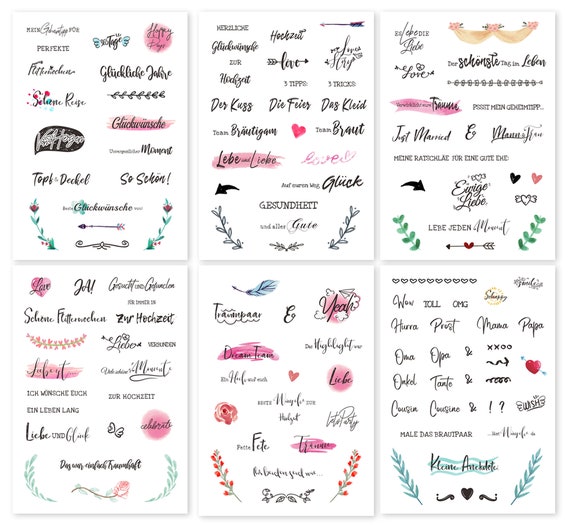 MEIN Geheimtipp FÜR
PERFEKTE
Tage
Happy Days
Flitterwochen
Glückliche Jahre
Schöne Reise
Glückwünsche
Unvergesslicher Moment
Topf & Deckel
So Schön!
Beste Glückwünsche
HERZLICHE
Glückwünsche
ZUR
Hochzeit
Hochzeit
love
Love Story
3 TIPPS:
3 TRICKS:
Der Kuss
Die Feier
Das Kleid
Team Bräutigam
Team Braut
Lebe und Liebe
loved
Auf eurem Weg
Glück
GESUNDHEIT
und alles Gute
ES LEBE DIE
Liebe
Love
Der schönste Tag im Leben
Verwirklicht eure Träume
PSSST MEIN GEHEIMTIPP...
Just Married
&
Mann & Frau
MEINE RATSCHLÄE FÜR EINE GUTE EHE:
Ewige Liebe
LEBE JEDEN Moment
Love
JA!
Gesucht und Gefunden
FÜR IMMER IN
Schöne Flitterwochen
Zur Hochzeit
Liebe
VERBUNDEN
Liebe ist
Moment
ICH WÜNSCHE EUCH
EIN LEBEN LANG
ZUR HOCHZEIT
Liebe UND Glück
celebrate
Das war einfach Traumhaft
Traumpaar
&
Yeah
Das Highlight war
Dream Team
Ein Hoch auf euch
Liebe
BESTE Wünsche ZUR
Hochzeit
Let's Party
Fette Fete
Träume
Ich befand sand war...
Familie
Wow
TOLL
OMG
Schnappy
Hurra
Prost
Mama
Papa
Oma
Opa
&
XXOO
Onkel
Tante
&
Cousin
Cousine
&
! ?
WISHES
MALE DAS BRAUTPAAR
Wünsche
Kleine Anekdote